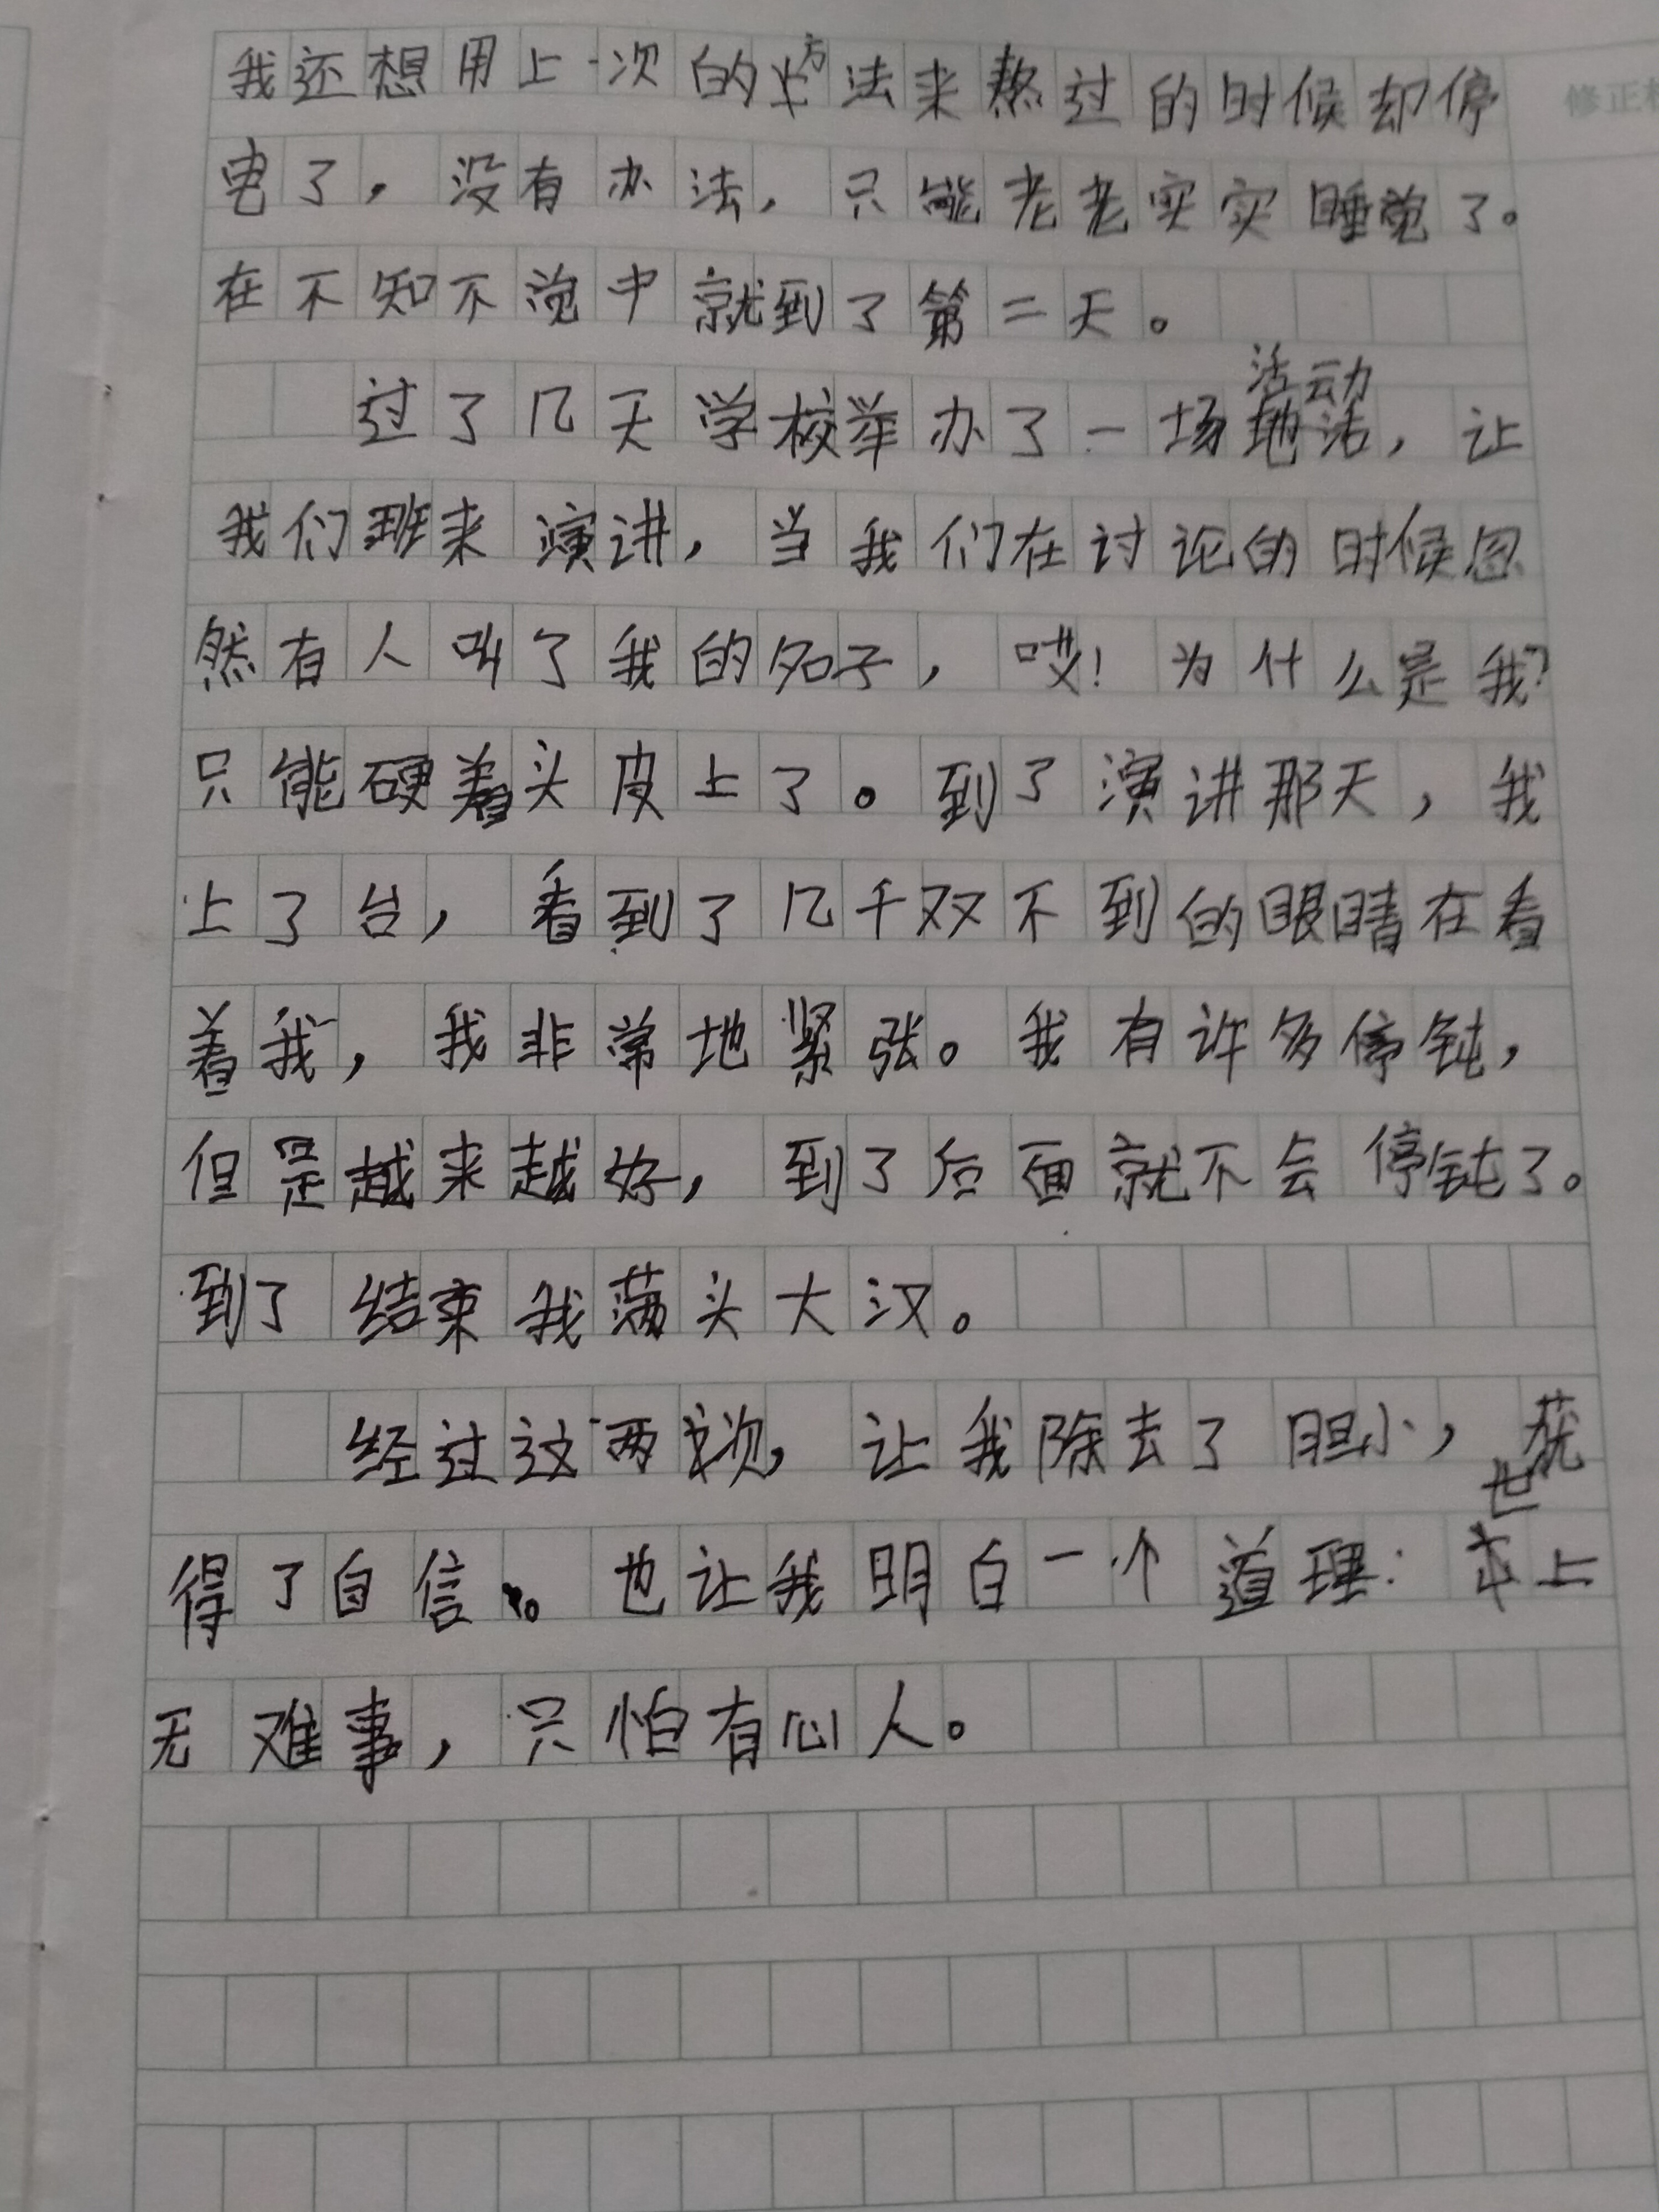 我还想用上一次的方法来熬过的时候却停
修正
电了，没有办法，只能老老实实睡觉了。
在不知不觉中就到了第二天。
活动
过了几天学校举办了一场地活，让
我们班来演讲，当我们在讨论的时候忽
然有人叫了我的名子，哎！为什么是我？
只能硬着头皮上了。到了演讲那天，我
上了台，看到了几千双不到的眼睛在看
着我，我非常地紧张。我有许多停钝，
但是越来越好，到了后面就不会停钝了。
到了结束我满头大汉。
经过这两次，让我除去了胆小，获
世
得了自信。也让我明白一个道理：上
无难事，只怕有心人。